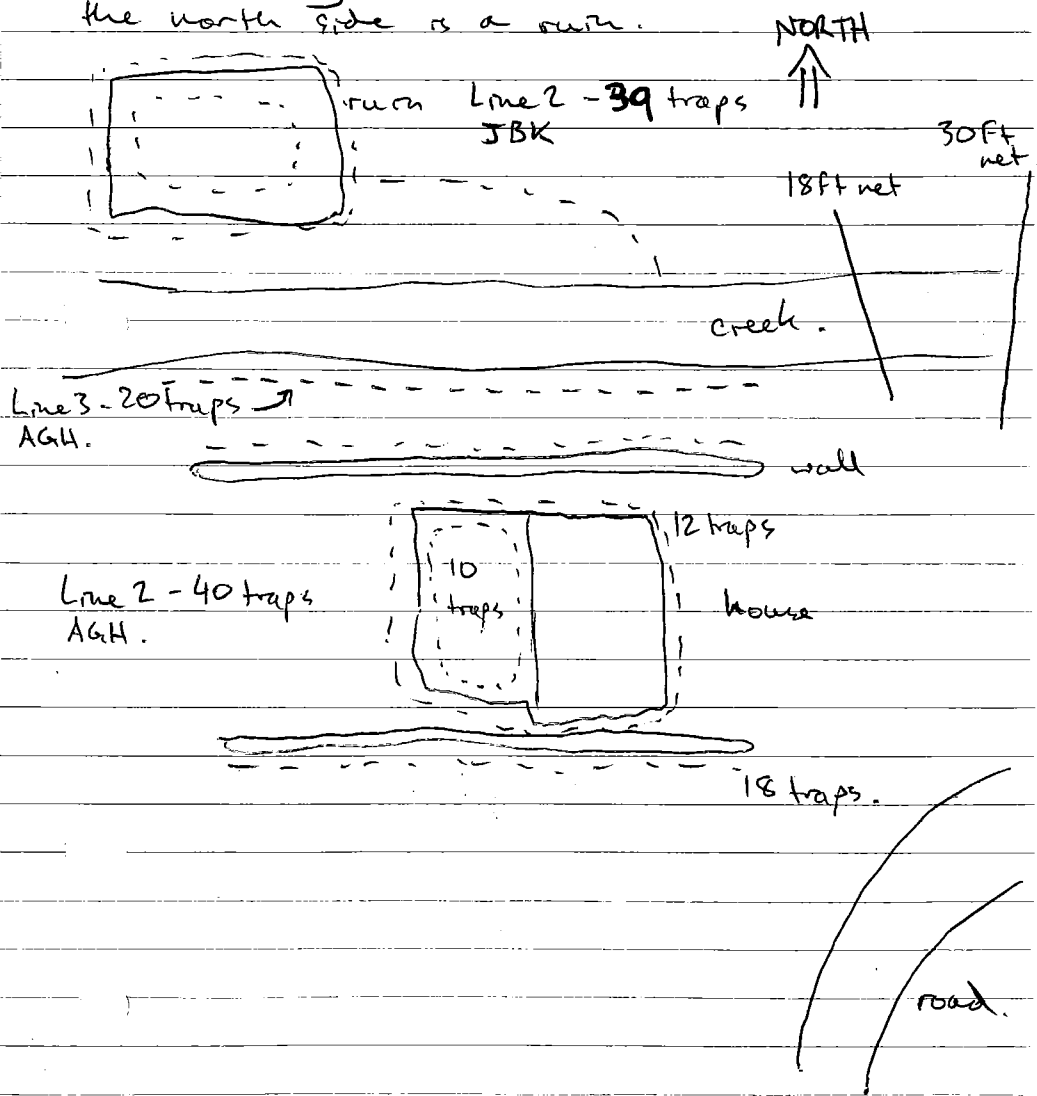 the north side is a ruin.
NORTH
ruin Line 2 - 39 traps
JBK
30ft
net
18ft net
creek.
Line 3 - 20 traps
AGH.
wall
12 traps
10
traps
Line 2 - 40 traps
AGH.
house
18 traps.
road.